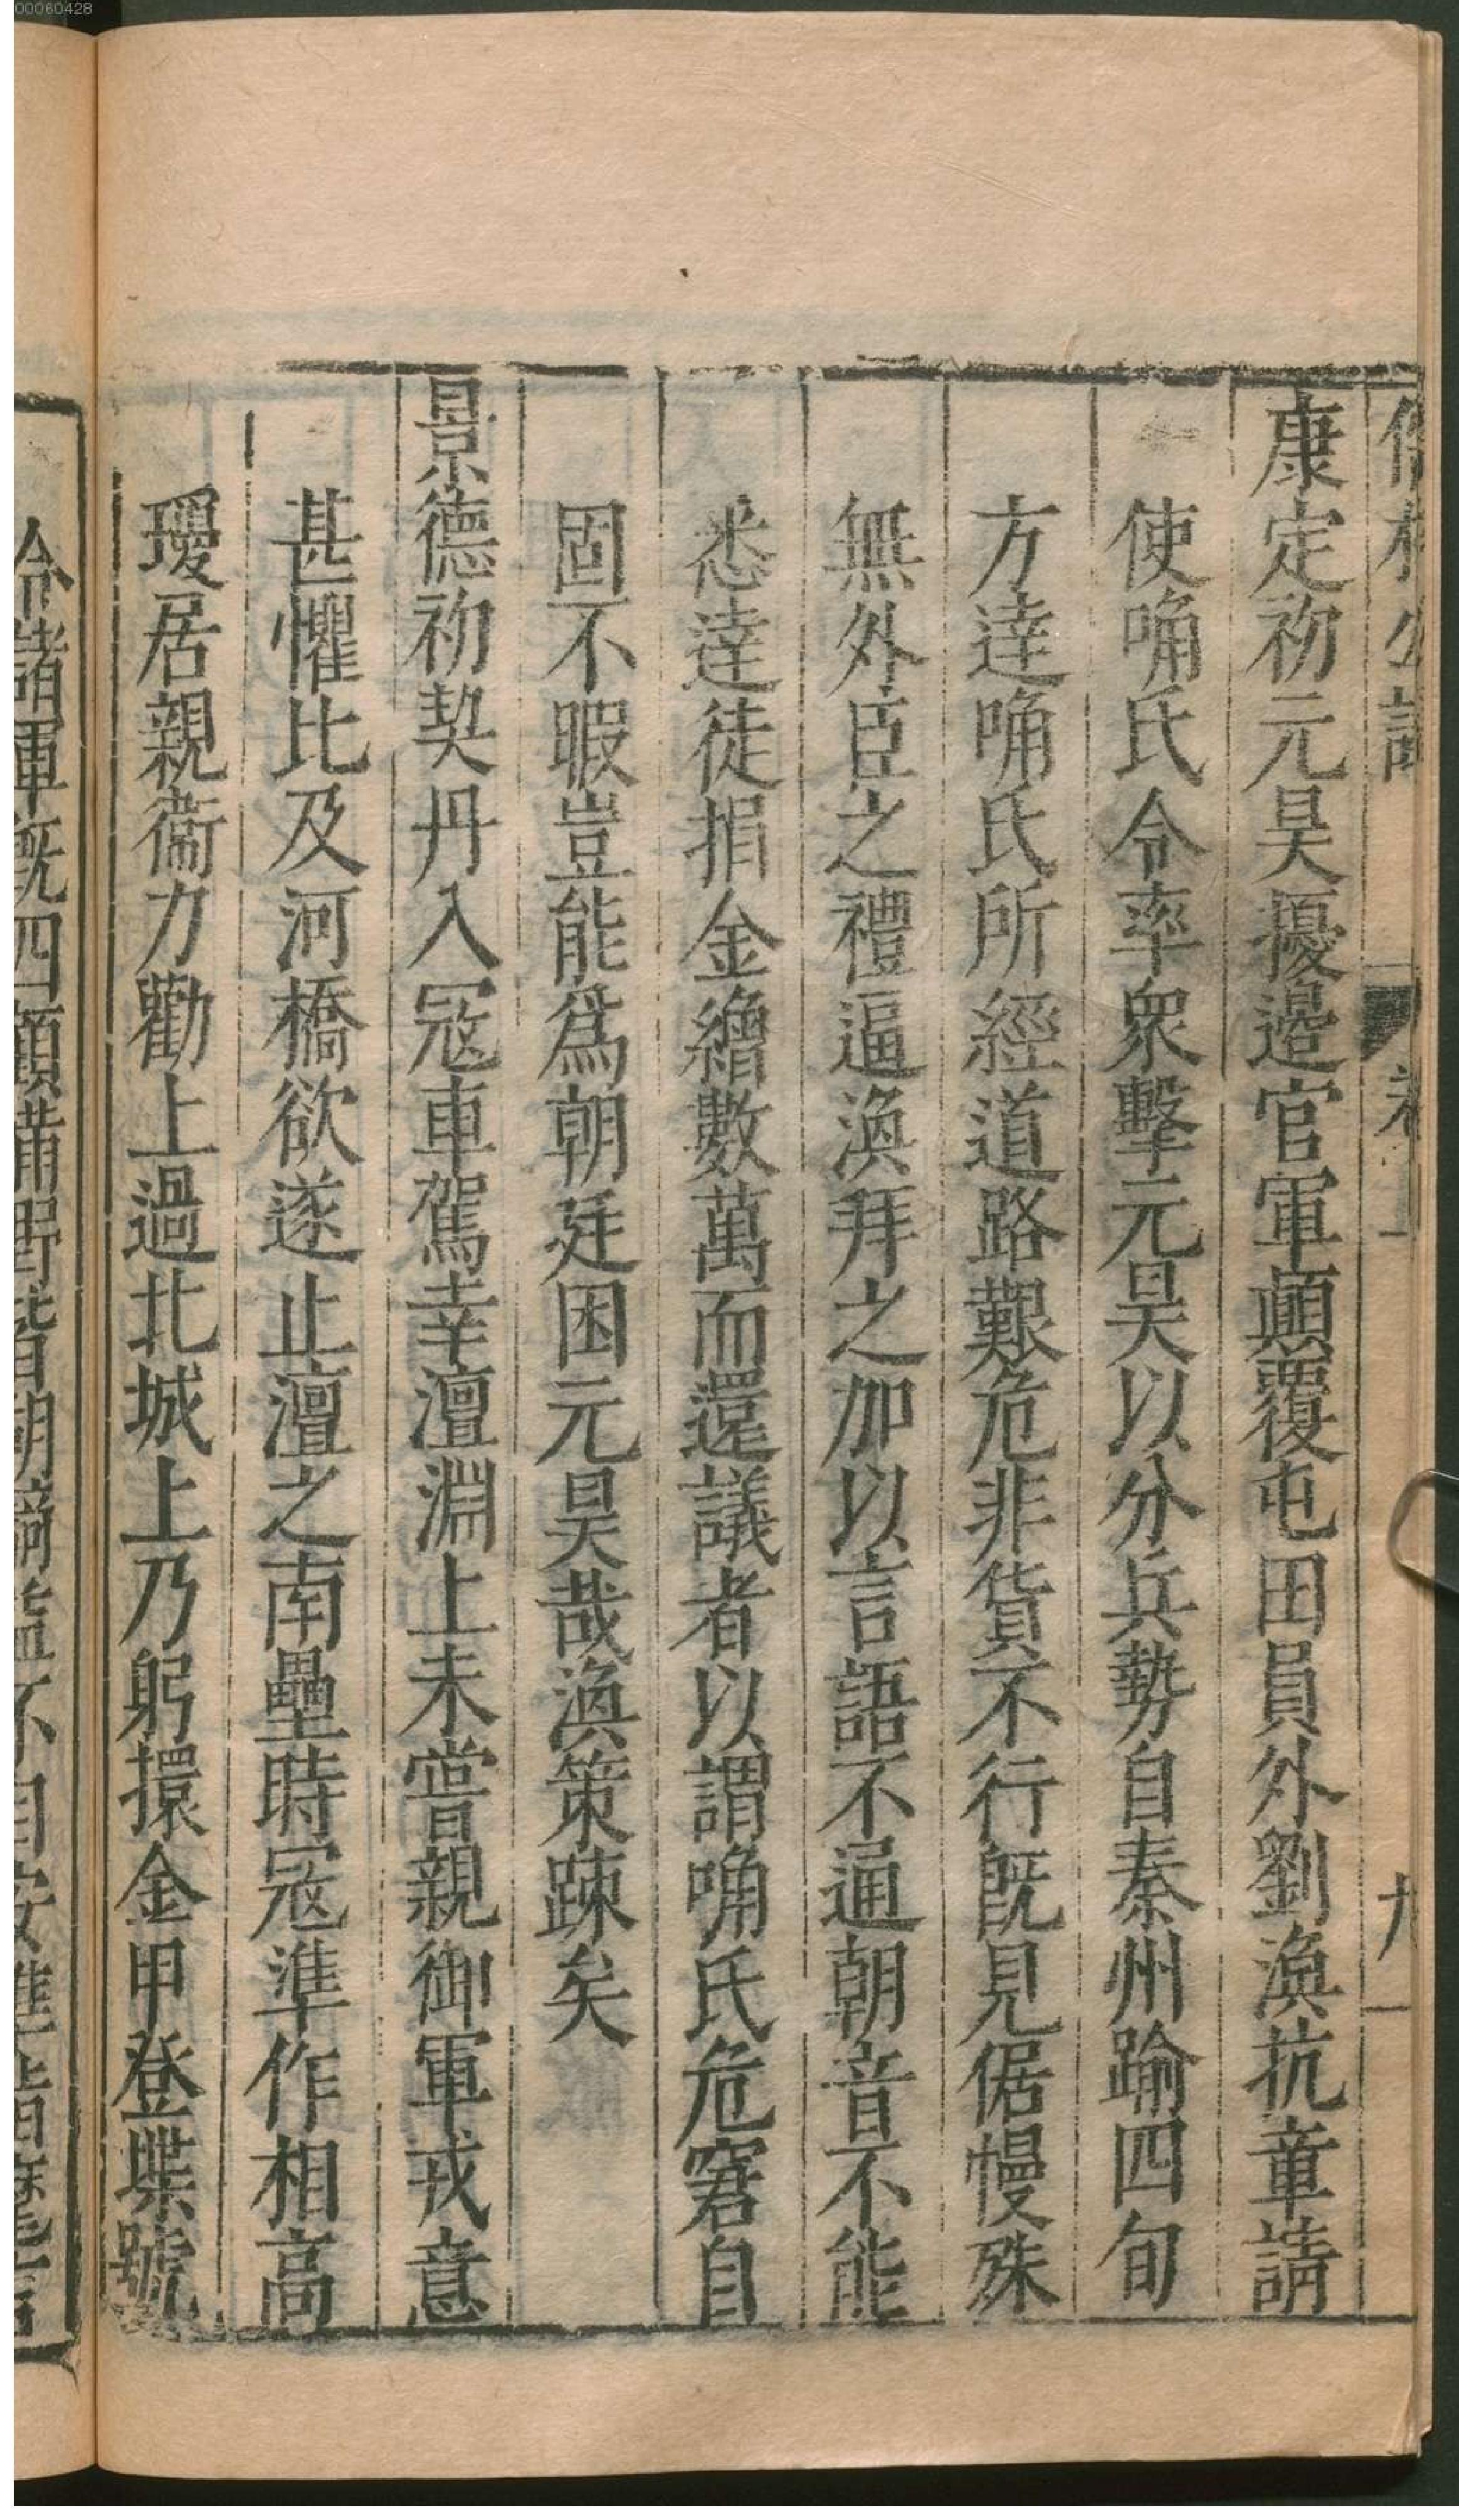 00060428
康定初元昊擾邉官軍顚覆屯田員外劉渙抗章請
使唃氏令率衆擊元昊以分兵勢自秦州踰四旬
方逹唃氏所經道路艱危非貨不行旣見倨慢殊
無外臣之禮逼渙拜之加以言語不通朝音不能
悉逹徒捐金繒數萬而還議者以謂唃氏危窘自
固不暇豈能爲朝廷困元昊哉渙策踈矣
景德初契丹入寇車駕幸澶淵上未甞親御軍戎意
甚懼比及河橋欲遂止澶之南壘時寇準作相高
瓊居親衞力勸上過北城上乃躬擐金甲登堞號
令諸軍旣四顧